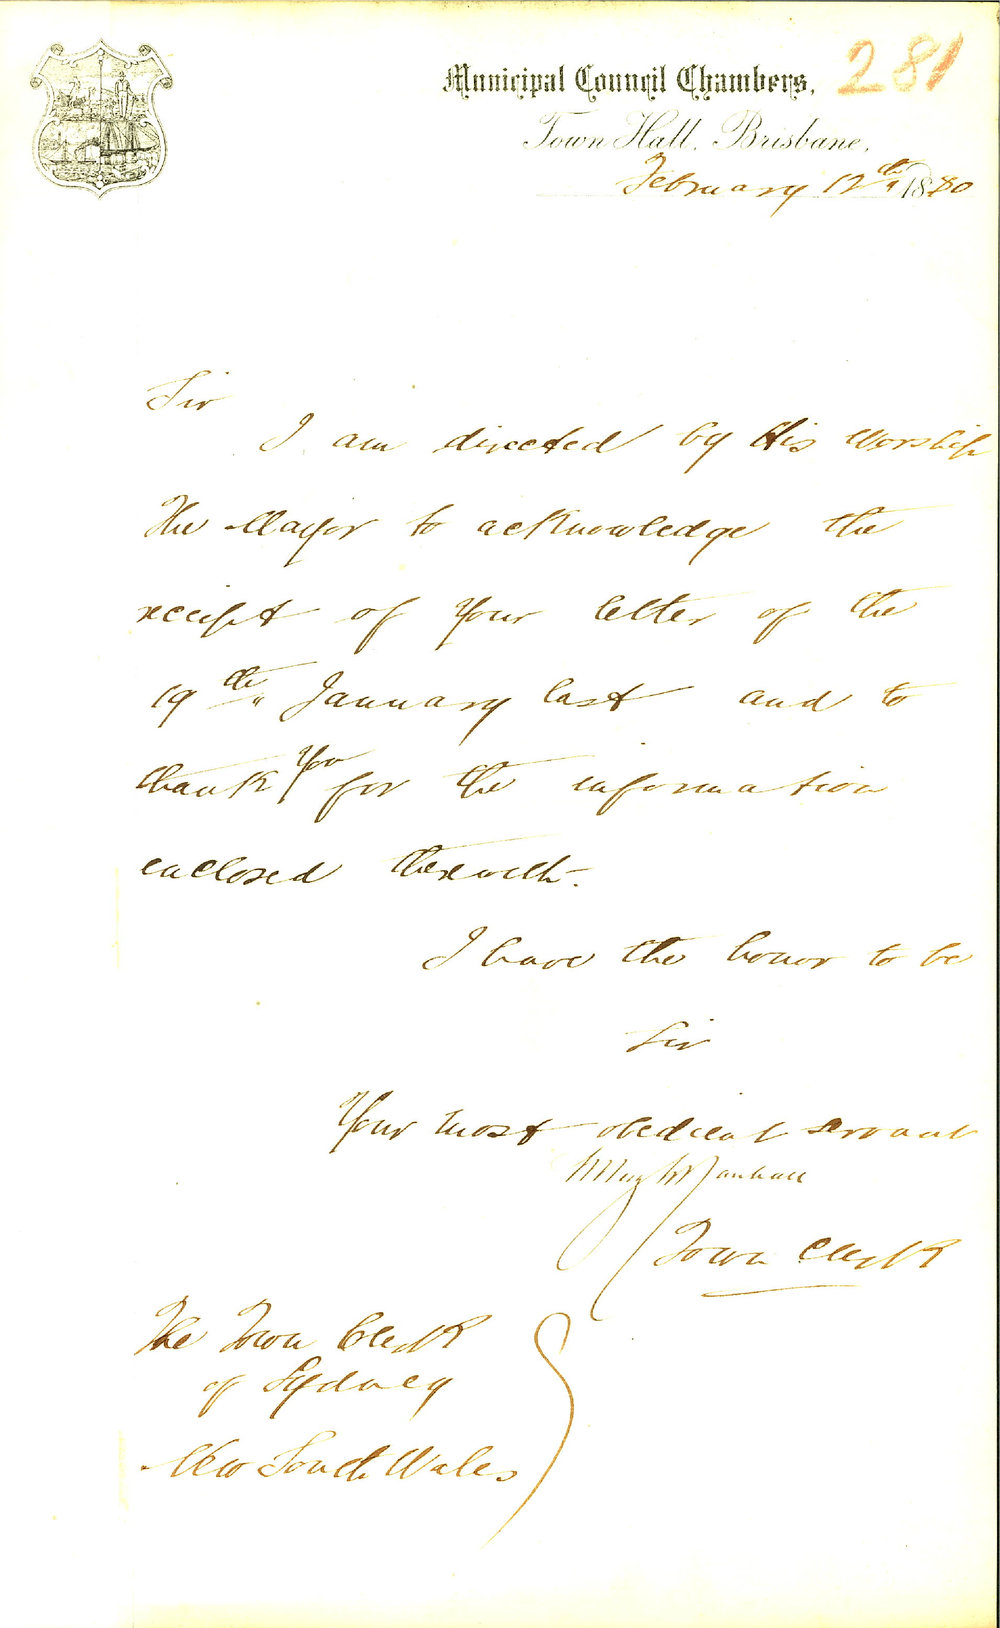 Municipal Council Chambers, 281
Town Hall, Brisbane,
February 12th 1880
Sir
I am directed by His Worship
The Mayor to acknowledge the
receipt of your letter of the
19th January last and to
thank you for the information
enclosed therewith.
I have the honor to be
Sir
Your most obedient servant
Marshall
Town Clerk
The Town Clerk
of Sydney
New South Wales